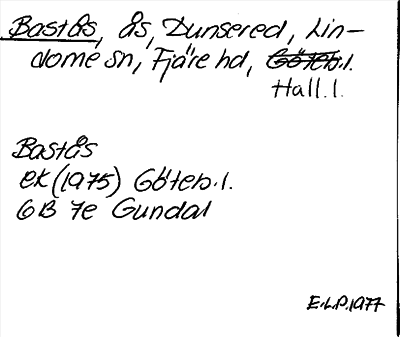 Bastås, ås, Dunsered, Lin-
dome sn, Fjäre hd, Göteb.l.
Hall.l.
Bastås
ek (1975) Göteb.l.
6B 7e Gundal
E.L.P.1977